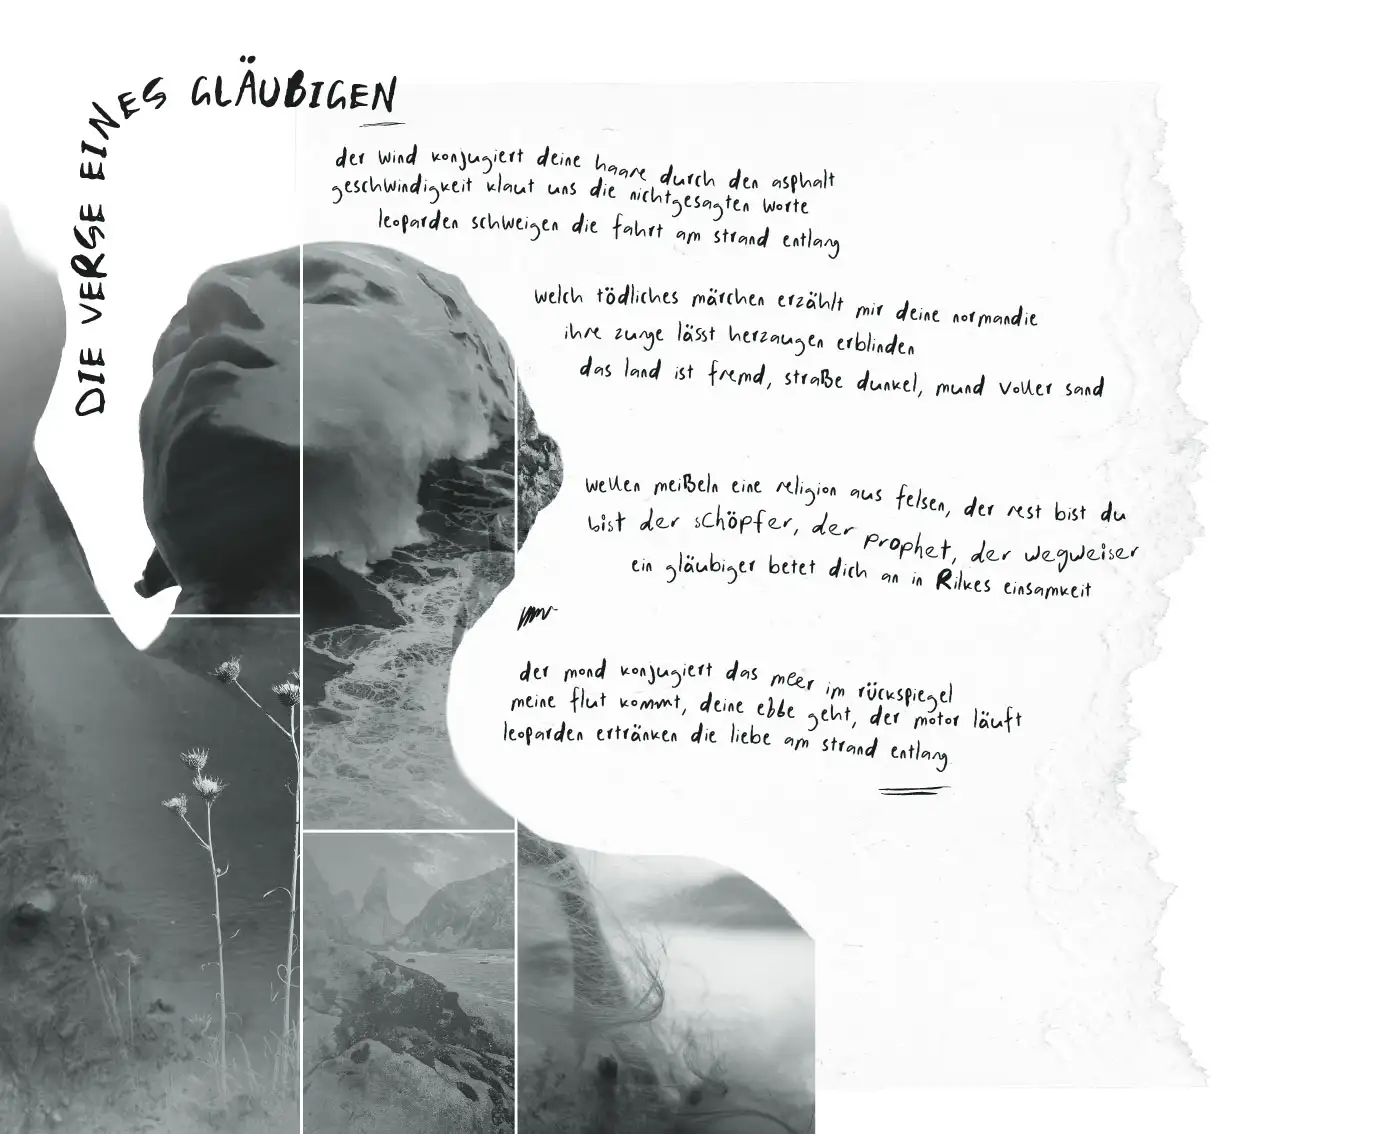 DIE VERSE EINES GLÄUBIGEN
der wind konjugiert deine haare durch den asphalt
geschwindigkeit klaut uns die nichtgesagten worte
leoparden schweigen die fahrt am strand entlang
welch tödliches märchen erzählt mir deine normandie
ihre zunge lässt herzaugen erblinden
das land ist fremd, straße dunkel, mund voller sand
wellen meißeln eine religion aus felsen, der rest bist du
bist der schöpfer, der prophet, der wegweiser
ein gläubiger betet dich an in Rilkes einsamkeit
der mond konjugiert das meer im rückspiegel
meine flut kommt, deine ebbe geht, der motor läuft
leoparden ertränken die liebe am strand entlang